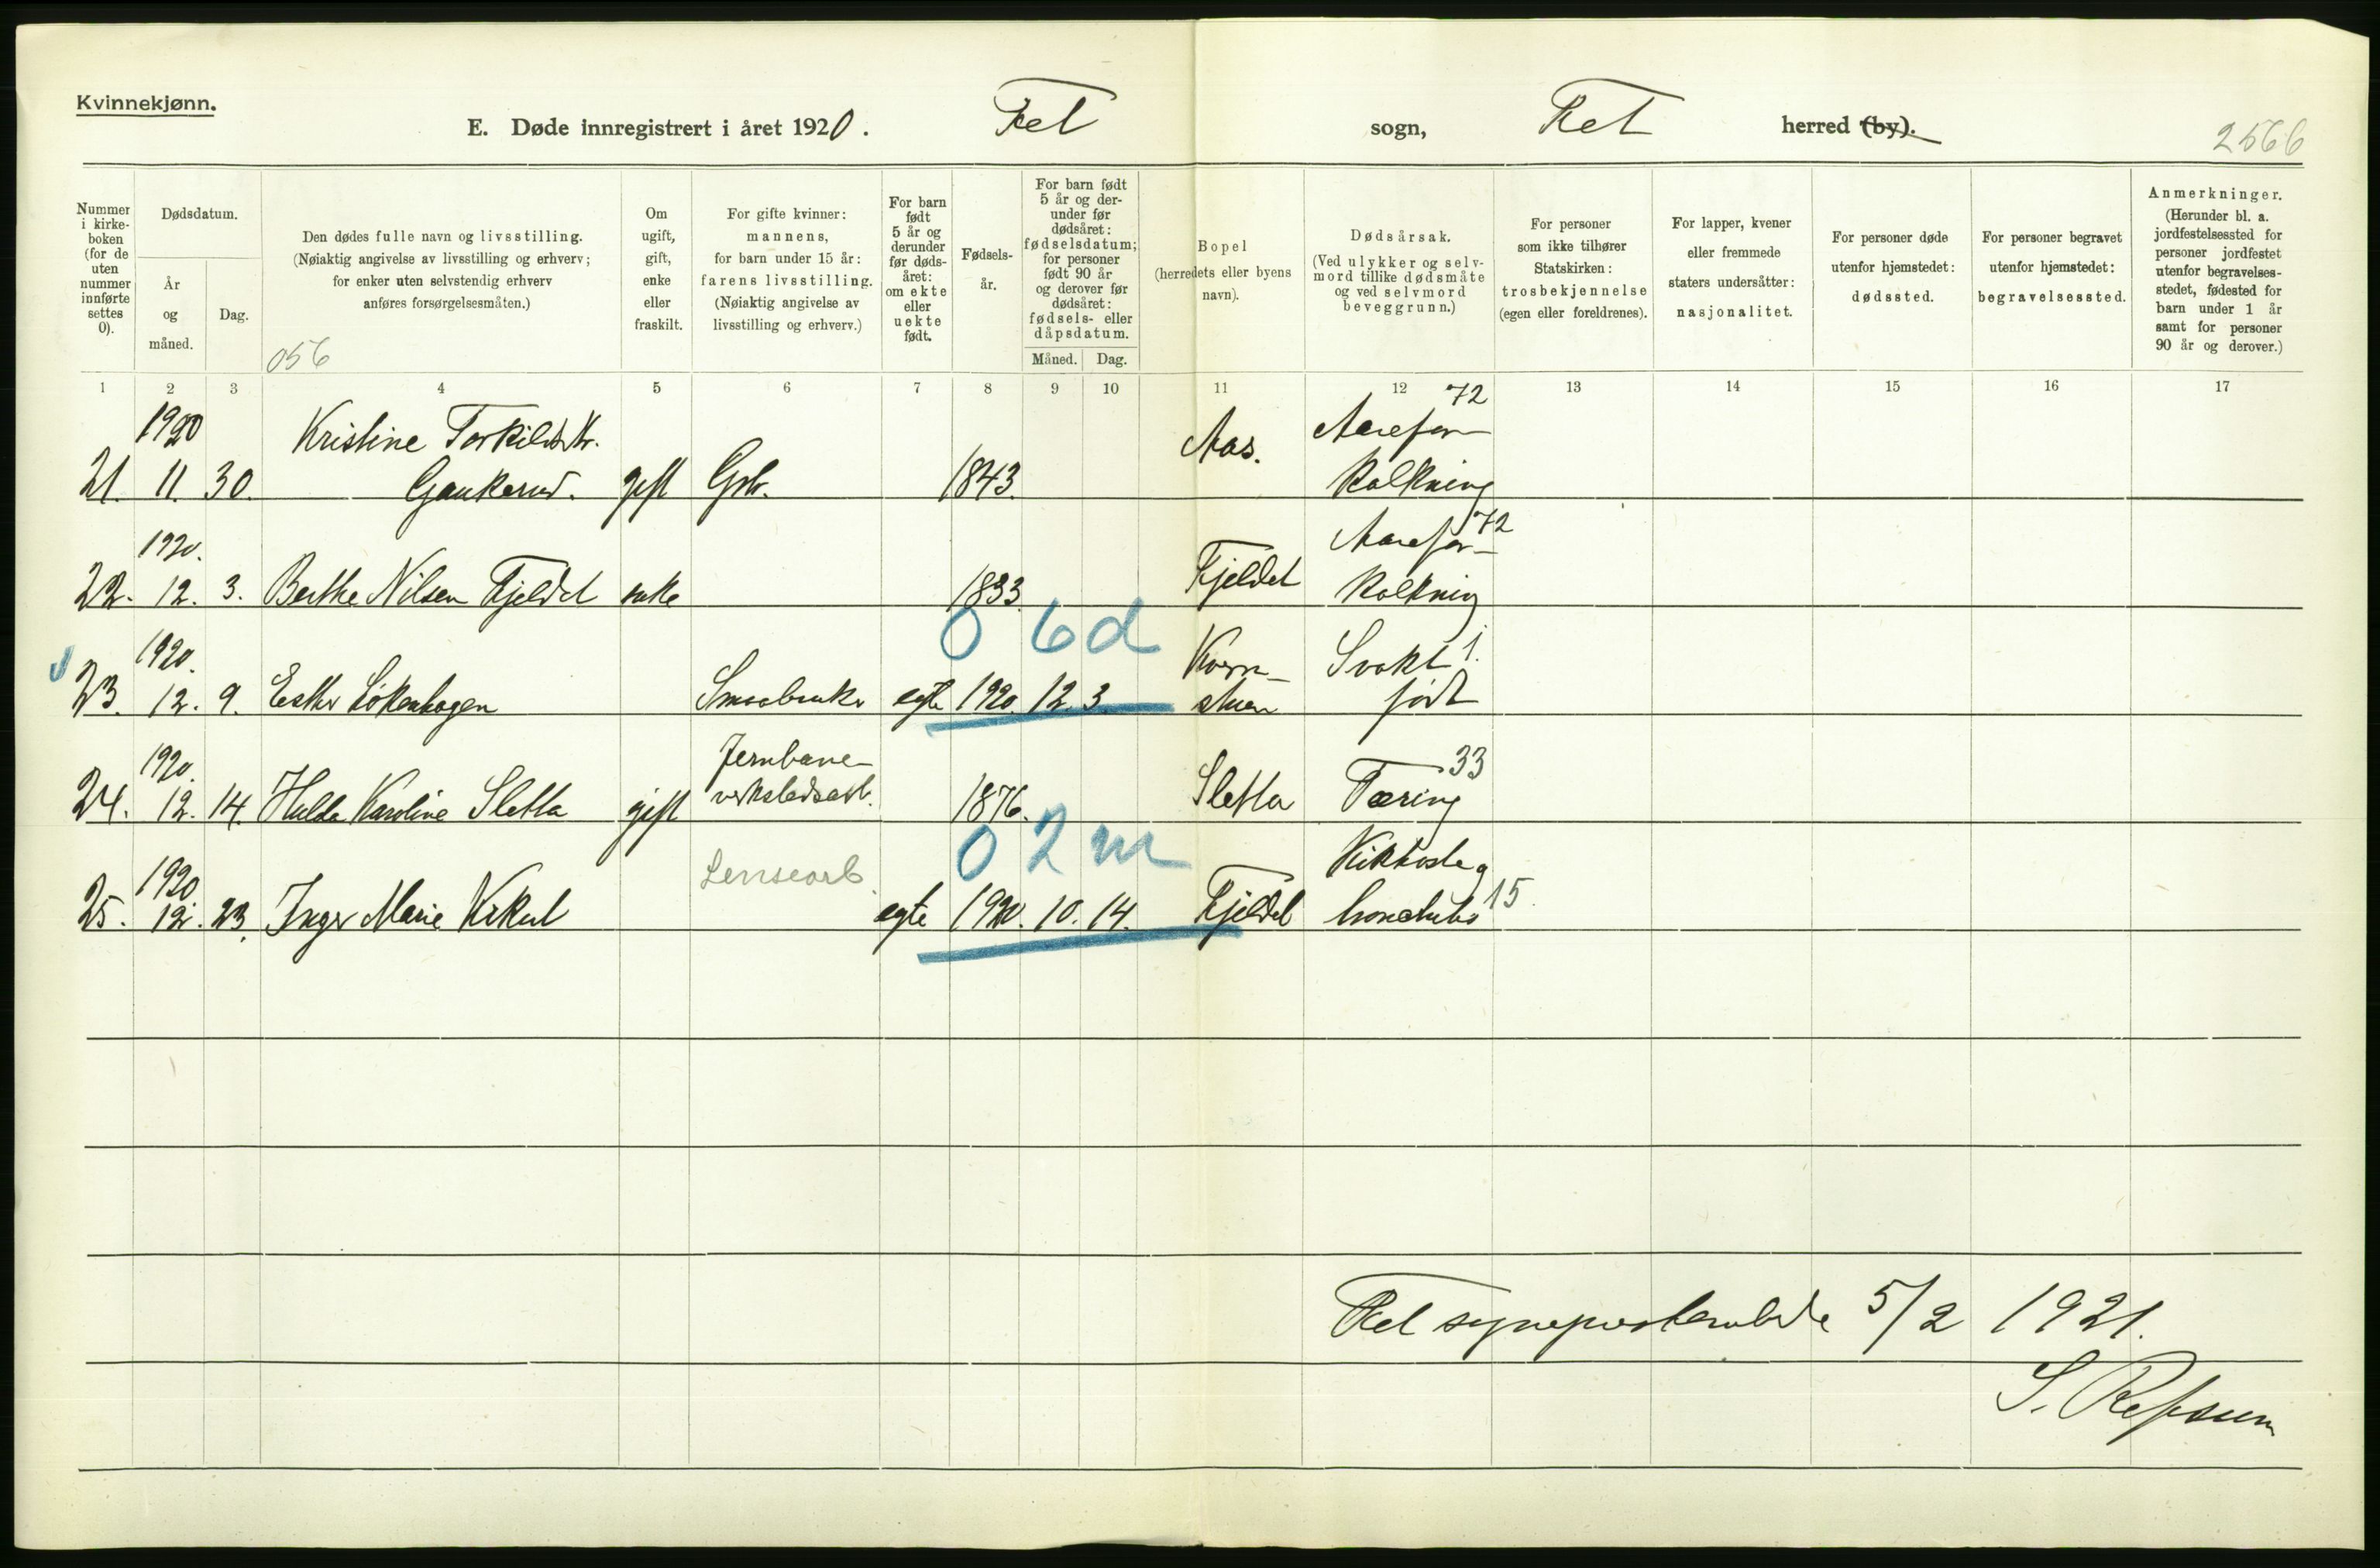 Kvinnekjønn.
E. Døde innregistrert i året 1920. Fet sogn, Fet herred (by).
2566
Nummer i kirkeboken (for de uten nummer innførte settes 0).
Dødsdatum.
År og måned.
Dag.
Den dødes fulle navn og livsstilling.
(Nøiaktig angivelse av livsstilling og erhverv;
for enker uten selvstendig erhverv
anføres forsørgelsesmåten.)
056
Om ugift, gift, enke eller fraskilt.
For gifte kvinner:
mannens,
for barn under 15 år:
farens livsstilling.
(Nøiaktig angivelse av
livsstilling og erhverv.)
For barn født 5 år og derunder før dødsåret: om ekte eller uekte født.
Fødselsår.
For barn født 5 år og derunder før dødsåret: fødselsdatum; for personer født 90 år og derover før dødsåret: fødsels- eller dåpsdatum.
Måned. Dag.
Bopel
(herredets eller byens
navn).
Dødsårsak.
(Ved ulykker og selvmord tillike dødsmåte og ved selvmord beveggrunn.)
For personer
som ikke tilhører
Statskirken:
trosbekjennelse
(egen eller foreldrenes).
For lapper, kvener
eller fremmede
staters undersåtter:
nasjonalitet.
For personer døde
utenfor hjemstedet:
dødssted.
For personer begravet
utenfor hjemstedet:
begravelsessted.
Anmerkninger.
(Herunder bl. a.
jordfestelsessted for
personer jordfestet
utenfor begravelses-
stedet, fødested for
barn under 1 år
samt for personer
90 år og derover.)
1 2 3 4 5 6 7 8 9 10 11 12 13 14 15 16 17
1920 Kristine Aas. Aarefor- 72
21. 11. 30. Gaukerud. gift 1843. kalkning
1920. Aarefor- 72
22. 12. 3. Berthe Nilsen Fjeldet enke 1833. Fjeldet kalkning
0 6 d
1920. Kvern- Svakt 1.
23. 12. 9. Esther Løkenhagen Smaabruker egte 1920. 12. 3. stuen født
1920. Jernbane- 33
24. 12. 14. Hulda Karoline Sletta gift verkstedsarb. 1876. Sletta Tæring
0 2 m
1920. Lensearb. Kikhoste og
25. 12. 23. Inger Marie egte 1920. 10. 14. Fjeldet 15.
Fet sogneprestembede 5/2 1921.
S. Refsum